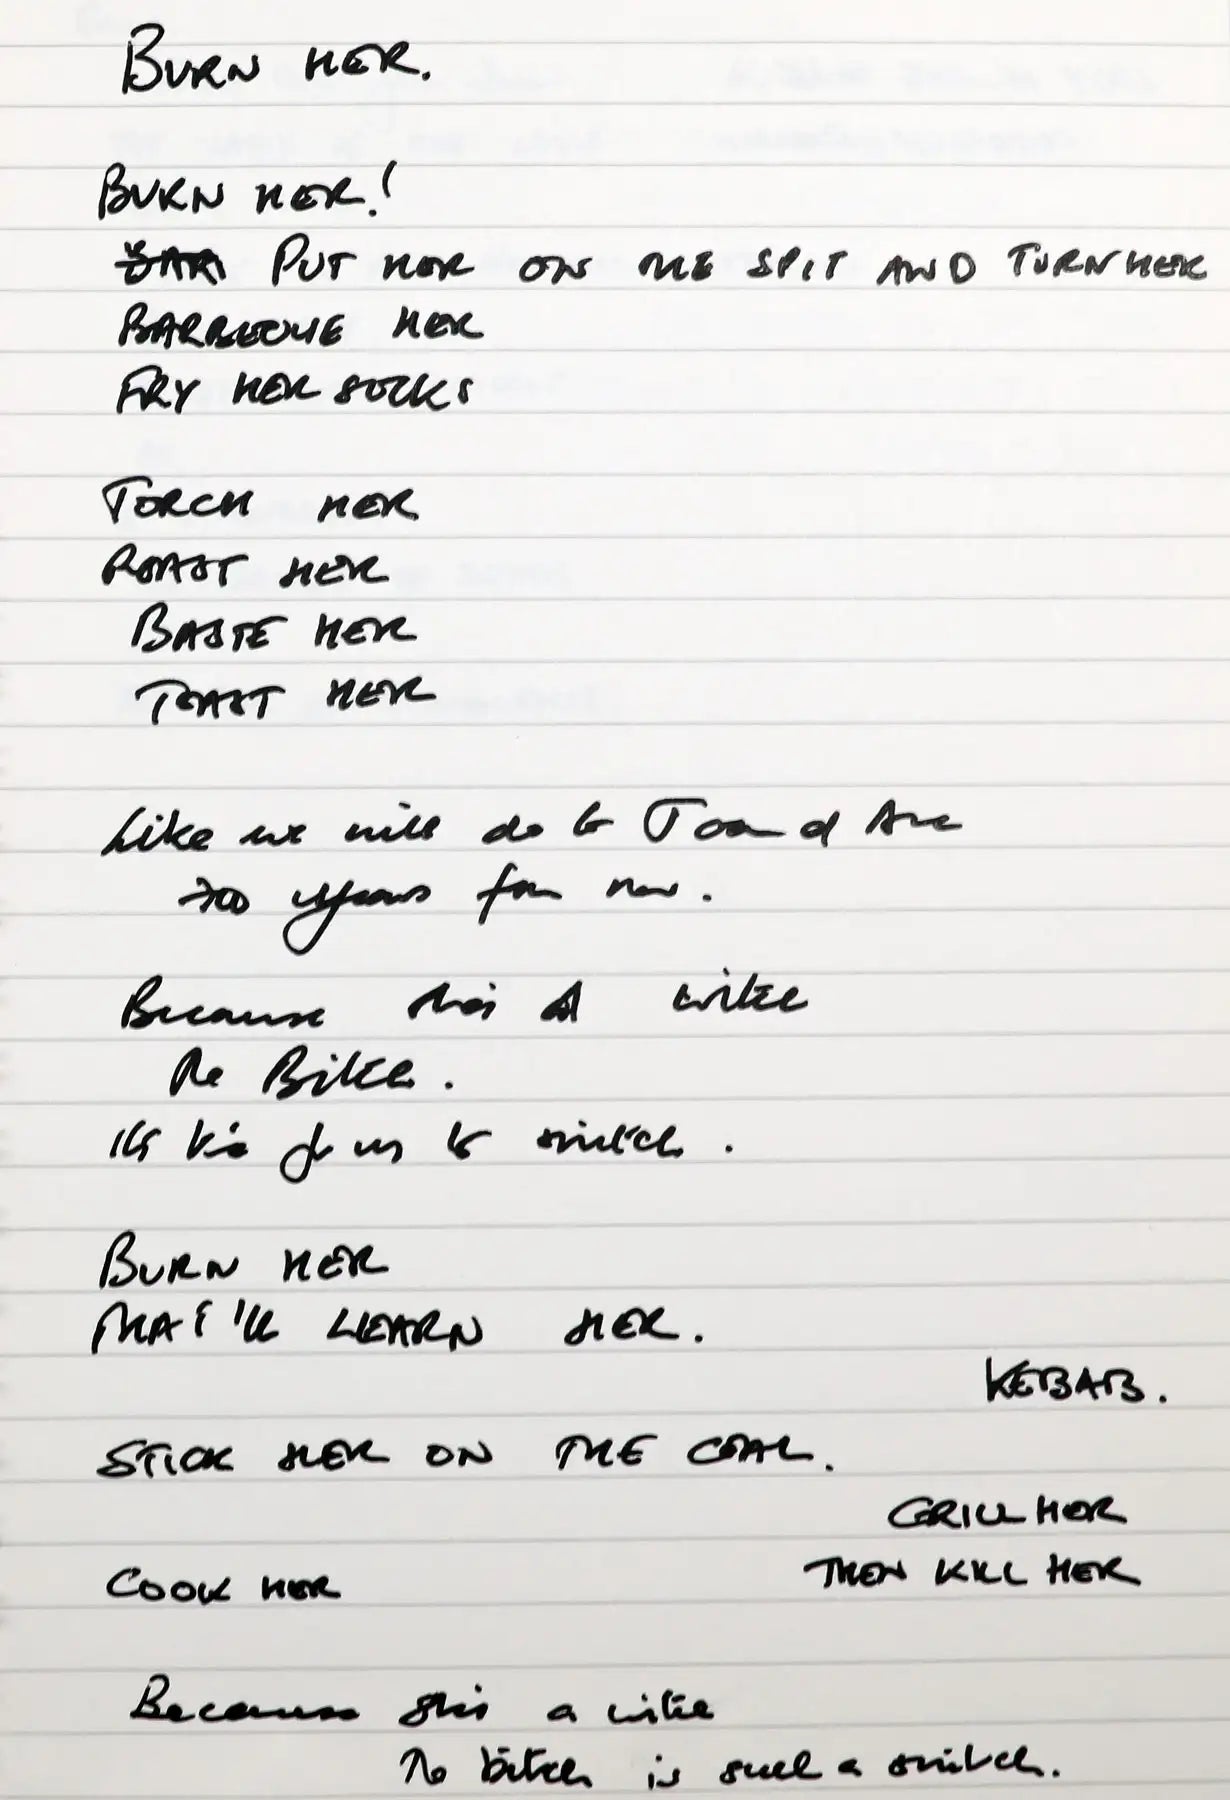 BURN HER.
BURN HER!
PUT HER ON THE SPIT AND TURN HER
BARBEQUE HER
FRY HER SOCKS
TORCH HER
ROAST HER
BASTE HER
TOAST HER
Like we will do to Joan of Arc
700 years from now.
Because she's A witch
The Bitch.
It's time for us to switch.
BURN HER
THAT'LL LEARN HER.
KEBAB.
STICK HER ON THE COAL.
GRILL HER
COOK HER
THEN KILL HER
Because she's a witch
The bitch is such a snitch.